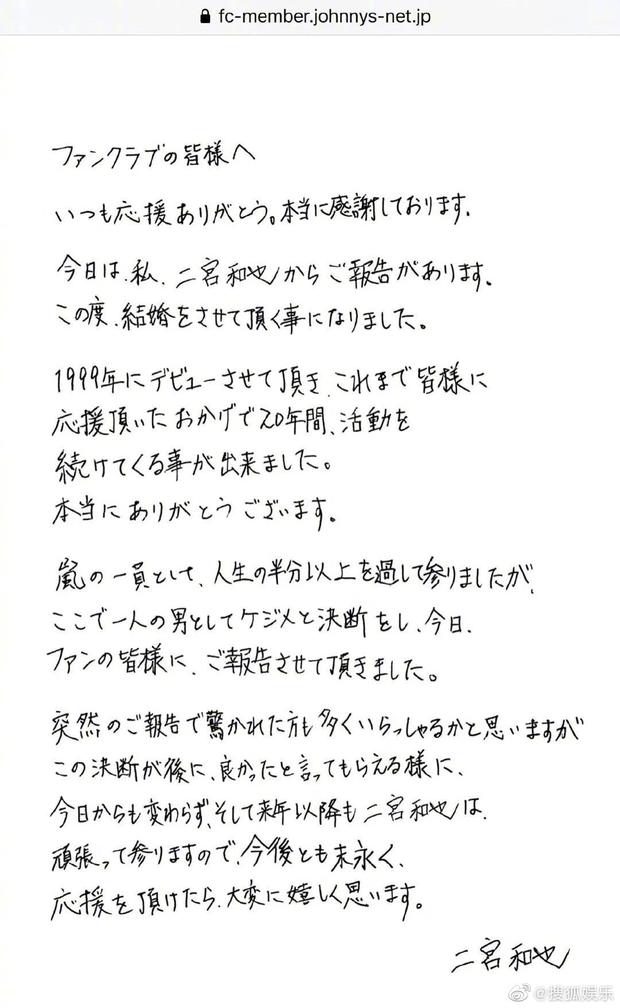 fc-member.johnnys-net.jp
ファンクラブの皆様へ
いつも応援ありがとう。本当に感謝しております。
今日は、私、二宮和也からご報告があります。
この度、結婚をさせて頂く事になりました。
1999年にデビューさせて頂き、これまで皆様に
応援頂いたおかげで20年間、活動を
続けてくる事が出来ました。
本当にありがとうございます。
嵐の一員として、人生の半分以上を過して参りましたが、
ここで一人の男としてケジメと決断をし、今日、
ファンの皆様に、ご報告させて頂きました。
突然のご報告で驚かれた方も多くいらっしゃるかと思いますが
この決断が後に、良かったと言ってもらえる様に、
今日からも変わらず、そして来年以降も二宮和也は、
頑張って参りますので、今後とも末永く、
応援を頂けたら、大変に嬉しく思います。
二宮和也
@搜狐娱乐